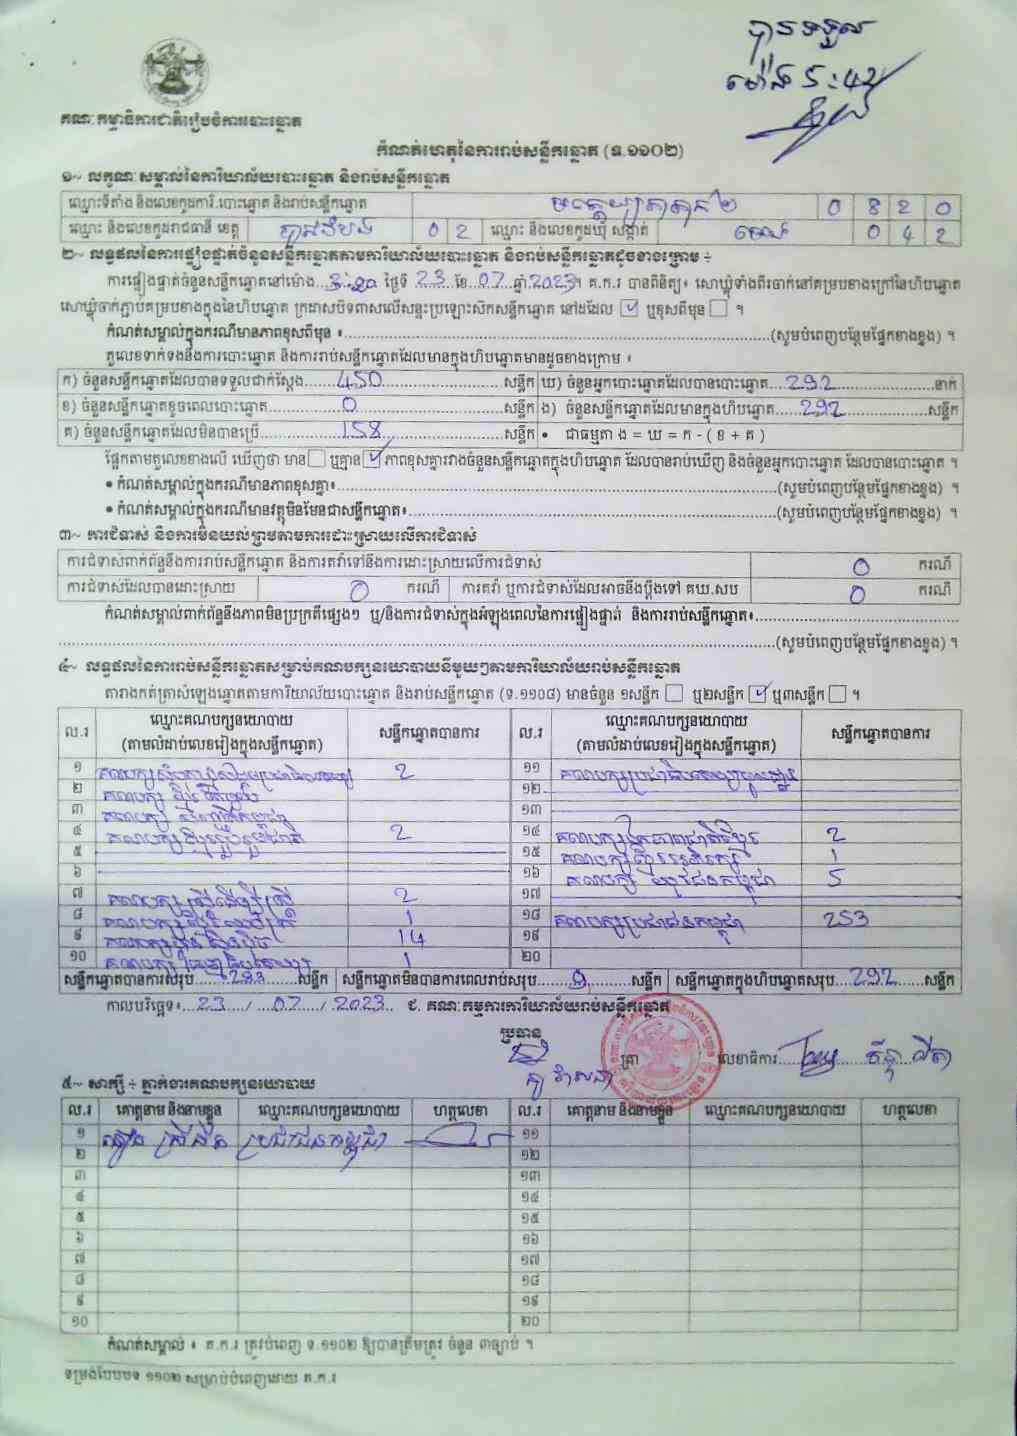 បានទទួល
ម៉ោង ៤:៤២
គណៈកម្មាធិការជាតិរៀបចំការបោះឆ្នោត
កំណត់ហេតុនៃការរាប់សន្លឹកឆ្នោត (ទ.១១០២)
១~ លក្ខណៈសម្គាល់នៃការិយាល័យបោះឆ្នោត និងរាប់សន្លឹកឆ្នោត
ឈ្មោះទីតាំង និងលេខកូដការិ.បោះឆ្នោត និងរាប់សន្លឹកឆ្នោត 0 8 2 0
ឈ្មោះ និងលេខកូដរាជធានី ខេត្ត បាត់ដំបង 0 2 ឈ្មោះ និងលេខកូដឃុំ សង្កាត់ 0 4 2
២~ លទ្ធផលនៃការផ្ទៀងផ្ទាត់ចំនួនសន្លឹកឆ្នោតតាមការិយាល័យបោះឆ្នោត និងរាប់សន្លឹកឆ្នោតដូចខាងក្រោម ÷
ការផ្ទៀងផ្ទាត់ចំនួនសន្លឹកឆ្នោតនៅម៉ោង 3:20 ថ្ងៃទី 23 ខែ 07 ឆ្នាំ 2023។ គ.ក.រ បានពិនិត្យ៖ សោឃ្មុំទាំងពីរចាក់នៅគម្របខាងក្រៅនៃហិបឆ្នោត
សោឃ្មុំចាក់ភ្ជាប់គម្របខាងក្នុងនៃហិបឆ្នោត ក្រដាសបិទពាសលើសន្ទះប្រឡោះសិកសន្លឹកឆ្នោត នៅដដែល ☑ ឬខុសពីមុន ☐ ។
កំណត់សម្គាល់ក្នុងករណីមានភាពខុសពីមុន ៖ (សូមបំពេញបន្ថែមផ្នែកខាងខ្នង) ។
តួលេខទាក់ទងនឹងការបោះឆ្នោត និងការរាប់សន្លឹកឆ្នោតដែលមានក្នុងហិបឆ្នោតមានដូចខាងក្រោម ៖
ក) ចំនួនសន្លឹកឆ្នោតដែលបានទទួលជាក់ស្តែង 450 សន្លឹក ឃ) ចំនួនអ្នកបោះឆ្នោតដែលបានបោះឆ្នោត 292 នាក់
ខ) ចំនួនសន្លឹកឆ្នោតខូចពេលបោះឆ្នោត 0 សន្លឹក ង) ចំនួនសន្លឹកឆ្នោតដែលមានក្នុងហិបឆ្នោត 292 សន្លឹក
គ) ចំនួនសន្លឹកឆ្នោតដែលមិនបានប្រើ 158 សន្លឹក • ជាធម្មតា ង = ឃ = ក - ( ខ + គ )
ផ្អែកតាមតួលេខខាងលើ ឃើញថា មាន ☐ ឬគ្មាន ☑ ភាពខុសគ្នារវាងចំនួនសន្លឹកឆ្នោតក្នុងហិបឆ្នោត ដែលបានរាប់ឃើញ និងចំនួនអ្នកបោះឆ្នោត ដែលបានបោះឆ្នោត ។
• កំណត់សម្គាល់ក្នុងករណីមានភាពខុសគ្នា៖ (សូមបំពេញបន្ថែមផ្នែកខាងខ្នង) ។
• កំណត់សម្គាល់ក្នុងករណីមានវត្ថុមិនមែនជាសន្លឹកឆ្នោត៖ (សូមបំពេញបន្ថែមផ្នែកខាងខ្នង) ។
៣~ ការជំទាស់ និងការមិនយល់ព្រមតាមការដោះស្រាយលើការជំទាស់
ការជំទាស់ពាក់ព័ន្ធនឹងការរាប់សន្លឹកឆ្នោត និងការតវ៉ាទៅនឹងការដោះស្រាយលើការជំទាស់ 0 ករណី
ការជំទាស់ដែលបានដោះស្រាយ 0 ករណី ការតវ៉ា ឬការជំទាស់ដែលអាចនឹងប្តឹងទៅ គឃ.សប 0 ករណី
កំណត់សម្គាល់ពាក់ព័ន្ធនឹងភាពមិនប្រក្រតីផ្សេងៗ ឬ/និងការជំទាស់ក្នុងអំឡុងពេលនៃការផ្ទៀងផ្ទាត់ និងការរាប់សន្លឹកឆ្នោត៖
(សូមបំពេញបន្ថែមផ្នែកខាងខ្នង) ។
៤~ លទ្ធផលនៃការរាប់សន្លឹកឆ្នោតសម្រាប់គណបក្សនយោបាយនីមួយៗតាមការិយាល័យរាប់សន្លឹកឆ្នោត
តារាងកត់ត្រាសំឡេងឆ្នោតតាមការិយាល័យបោះឆ្នោត និងរាប់សន្លឹកឆ្នោត (ទ.១១០៨) មានចំនួន ១សន្លឹក ☐ ឬ២សន្លឹក ☑ ឬ៣សន្លឹក ☐ ។
ល.រ ឈ្មោះគណបក្សនយោបាយ (តាមលំដាប់លេខរៀងក្នុងសន្លឹកឆ្នោត) សន្លឹកឆ្នោតបានការ ល.រ ឈ្មោះគណបក្សនយោបាយ (តាមលំដាប់លេខរៀងក្នុងសន្លឹកឆ្នោត) សន្លឹកឆ្នោតបានការ
១ 2 ១១
២ ១២
៣ ១៣
៤ 2 ១៤ 2
៥ ១៥ 1
៦ ១៦ គណបក្ស យុវជនកម្ពុជា 5
៧ 2 ១៧
៨ 1 ១៨ គណបក្សប្រជាជនកម្ពុជា 253
៩ គណបក្សហ៊្វុនស៊ិនប៉ិច 14 ១៩
១០ 1 ២០
សន្លឹកឆ្នោតបានការសរុប 283 សន្លឹក សន្លឹកឆ្នោតមិនបានការពេលរាប់សរុប 9 សន្លឹក សន្លឹកឆ្នោតក្នុងហិបឆ្នោតសរុប 292 សន្លឹក
កាលបរិច្ឆេទ៖ 23 / 07 / 2023 ជ. គណៈកម្មការការិយាល័យរាប់សន្លឹកឆ្នោត
ប្រធាន
ត្រា លេខាធិការ
៥~ សាក្សី ÷ ភ្នាក់ងារគណបក្សនយោបាយ
ល.រ គោត្តនាម និងនាមខ្លួន ឈ្មោះគណបក្សនយោបាយ ហត្ថលេខា ល.រ គោត្តនាម និងនាមខ្លួន ឈ្មោះគណបក្សនយោបាយ ហត្ថលេខា
១ ប្រជាជនកម្ពុជា ១១
២ ១២
៣ ១៣
៤ ១៤
៥ ១៥
៦ ១៦
៧ ១៧
៨ ១៨
៩ ១៩
១០ ២០
កំណត់សម្គាល់ ៖ គ.ក.រ ត្រូវបំពេញ ទ.១១០២ ឱ្យបានត្រឹមត្រូវ ចំនួន ៣ច្បាប់ ។
ទម្រង់បែបបទ ១១០២ សម្រាប់បំពេញដោយ គ.ក.រ